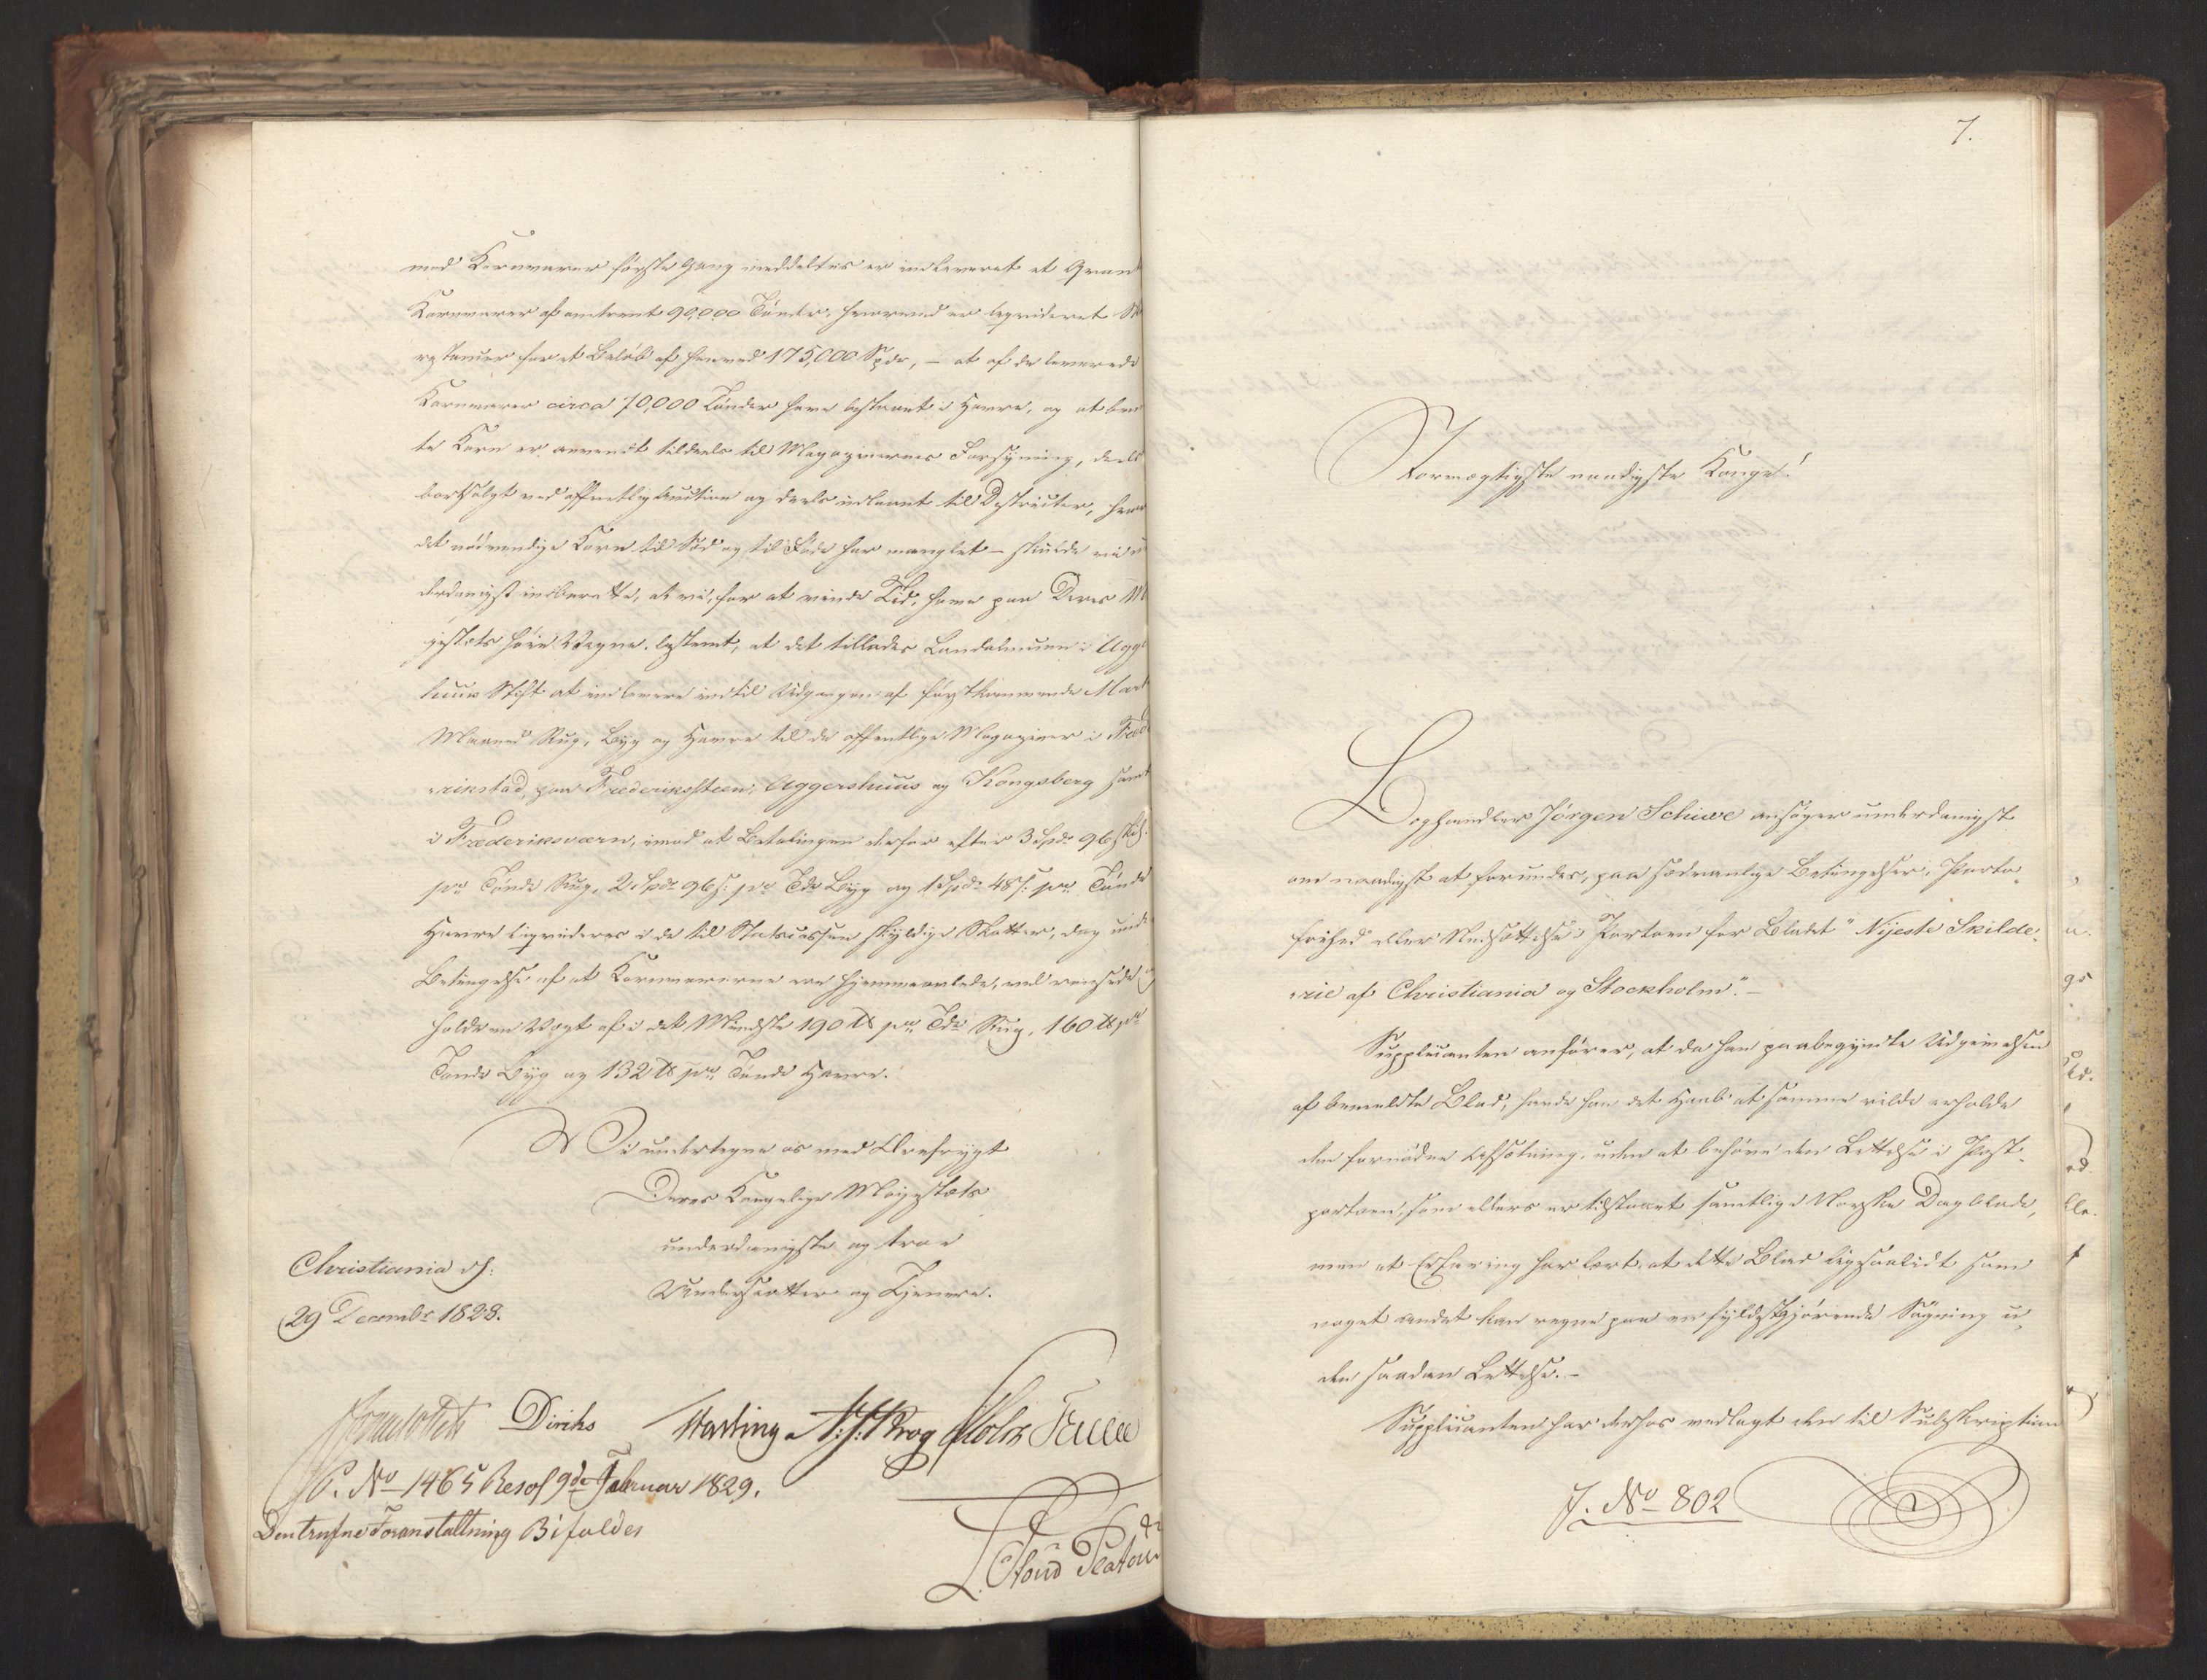 med Kornvarer første Gang meddeltes er indleveret et Qvan
Kornvarer af omtrent 90,000 Tønder, hvormed er liqvideret Sk
restancer for et Beløb af henved 175,000 Spdr, – at af de leverede
Kornvarer circa 70,000 Tønder have bestaaet i Havre, og at
te Korn er anvendt tildeels til Magazinernes Forsyning, deels
bortsolgt ved offentlig Auction og deels udlaant til Districter, hvor
det nødvendige Korn til Sæd og til Føde har manglet – skulde vi u
derdanigst indberette, at vi, for at vinde Tid, have paa Deres M
jestæts høie Vegne bestemt, at det tillades Landalmuen i Agge
huus Stift at indlevere indtil Udgangen af førstkommende Mart
Maaned Rug, Byg og Havre til de offentlige Magaziner i Fred
rikstad, paa Frederiksteen, Aggershuus og Kongsberg samt
i Frederiksværn, imod at Betalingen derfor efter 3 Spdr 96 sk.
pr Tønde Rug, 2 Spdr 96 s. pr Tde Byg og 1 Spdr 48 s. pr Tønde
Havre liqvideres i de til Statscassen skyldige Skatter, dog unde
Betingelse af at Kornvarerne ere hjemmeavlede, vel rensede og
holde en Vægt af i det Mindste 190 ℔ pr Tde Rug, 160 ℔ pr
Tønde Byg og 132 ℔ pr Tønde Havre.
Vi undertegne os med Ærefrygt
Deres Kongelige Majestæts
underdanigste og troe
Undersaatter og Tjenere.
Christiania d:
29 Decembr 1828.
Diriks N: J: Krog Holst
P. No 1465 Resol 9de Februar 1829.
Den trufne Foranstaltning Bifaldes
7.
Stormægtigste naadigste Konge!
Boghandler Jörgen Schiwe ansøger underdanigst
om naadigst at forundes, paa sædvanlige Betingelser, Porto-
frihed eller Nedsættelse i Portoen for Bladet "Nyeste Skilde-
rie af Christiania og Stockholm". –
Supplicanten anfører, at da han paabegyndte Udgivelsen
af bemeldte Blad, havde han det Haab at samme vilde erholde
den fornødne Afsætning, uden at behøve den Lettelse i Post-
portoen, som ellers er tilstaaet samtlige Norske Dagblade,
men at Erfaring har lært, at dette Blad ligesaalidt som
noget andet kan regne paa en fyldestgjørende Søgning u-
den saadan Lettelse. –
Supplicanten har derhos vedlagt den til Subskription
J. No 802